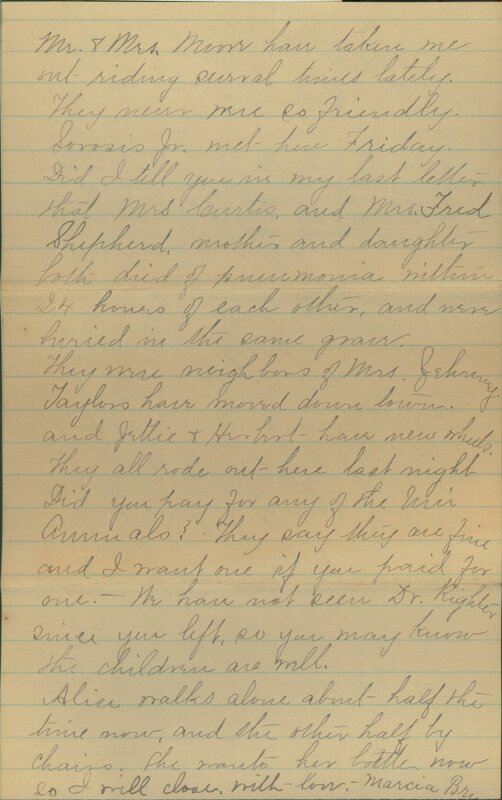 Mr. & Mrs. Moore have taken me
out riding several times lately.
They never were so friendly.
Sorosis Jr. met here Friday.
Did I tell you in my last letter
that Mrs Curtis, and Mrs. Fred
Shepherd, mother and daughter
both died of pneumonia within
24 hours of each other, and were
buried in the same grave.
They were neighbors of Mrs.
Taylors have moved down town.
and Jettie & Herbert have new wheels.
They all rode out here last night
Did you pay for any of the Uni
Annuals? They say they are fine
and I want one if you paid for
one. — We have not seen Dr. Righter
since you left, so you may know
the children are well.
Alice walks alone about half the
time now, and the other half by
chairs. She wants her bottle now
so I will close. with love. — Marcia